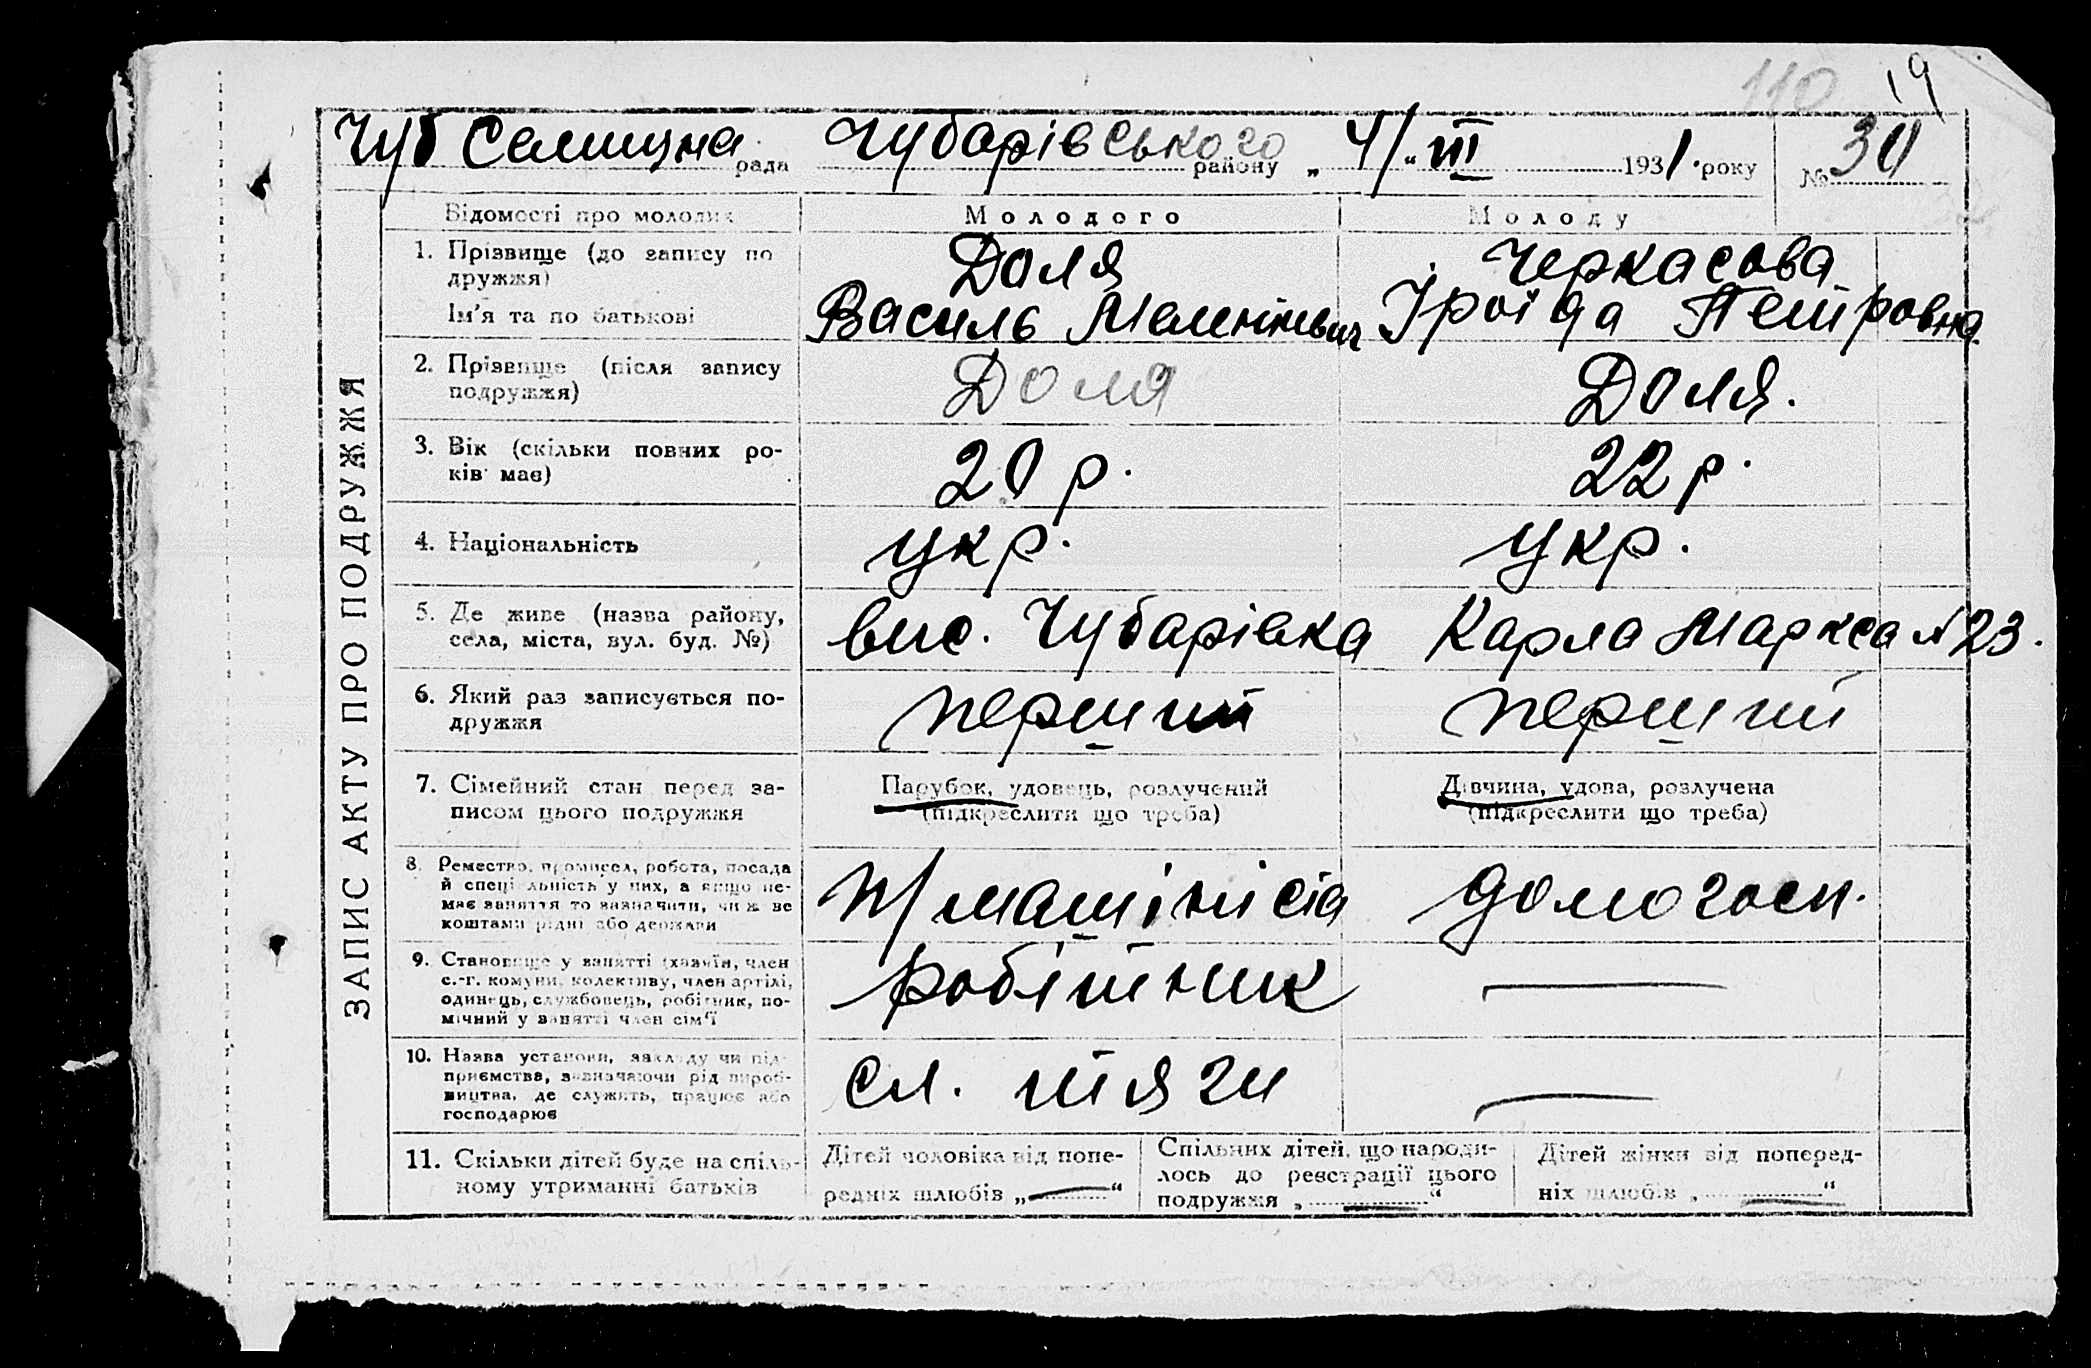 110 19
Чуб Селищна рада Чубарівського району „ 4/ “ III 1931 року № 30
ЗАПИС АКТУ ПРО ПОДРУЖЖЯ
Відомості про молодих
Молодого
Молоду
1. Прізвище (до запису по
дружжя)
Ім'я та по батькові
Доля
Василь
Черкасова
Іроїда Петровна
2. Прізвище (після запису
подружжя)
Доля
Доля.
3. Вік (скільки повних ро-
ків має)
20 р.
22 р.
4. Національність
укр.
укр.
5. Де живе (назва району,
села, міста, вул. буд. №)
вис. Чубарівка
Карла Маркса N 23.
6. Який раз записується по-
дружжя
перший
перший
7. Сімейний стан перед за-
писом цього подружжя
Парубок, удовець, розлучений
(підкреслити що треба)
Дівчина, удова, розлучена
(підкреслити що треба)
8. Ремество, промисел, робота, посада
й спеціяльність у них, а якщо не-
має заняття то зазначити, чиїм
коштами рідні або держави
п/машініста
домогосп.
9. Становище у занятті (хазяїн, член
с.-г. комуни, колективу, член артілі,
одинець, службовець, робітник, по-
мічний у занятті член сім'ї
робітник
10. Назва установи, закладу чи під-
приємства, зазначаючи рід вироб-
ництва, де служить, працює або
господарює
сл. тяги
11. Скільки дітей буде на спіль-
ному утриманні батьків
Дітей чоловіка від попе-
редніх шлюбів „ “
Спільних дітей, що народи-
лось до реєстрації цього
подружжя „ “
Дітей жінки від поперед-
ніх шлюбів „ “